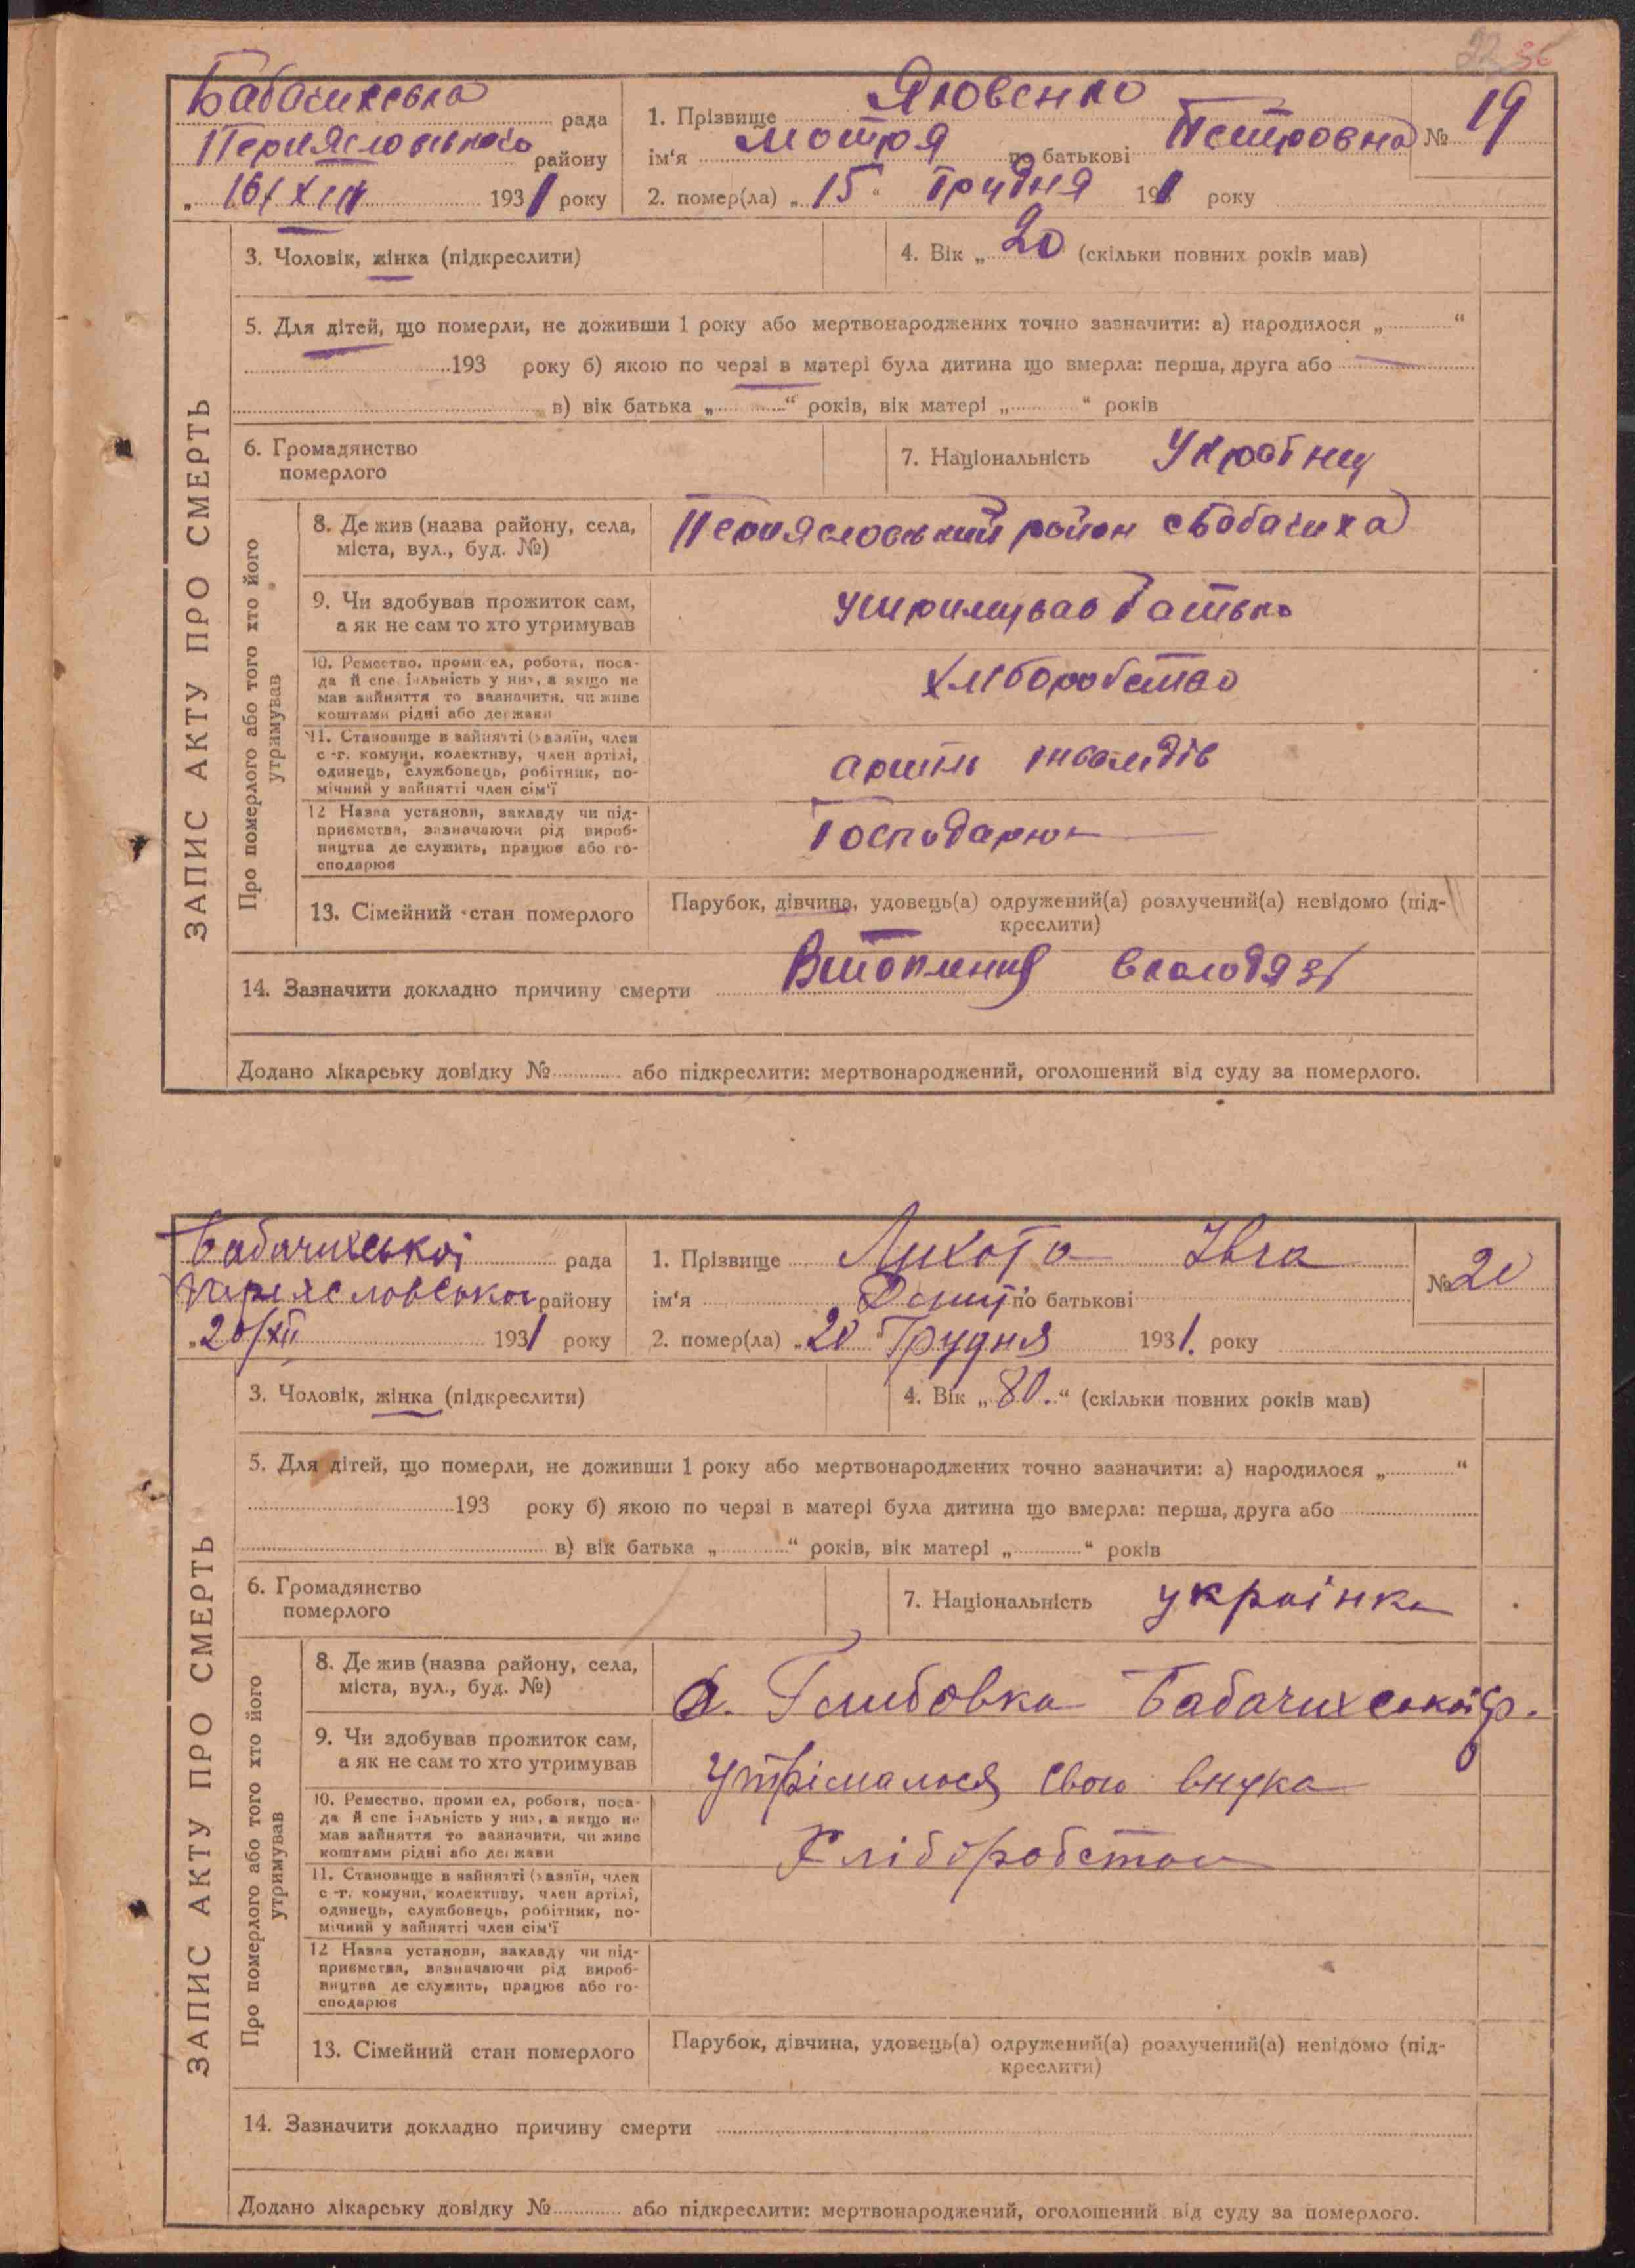 36
Бабачихська рада
Переяславського району
„ 16/XII 1931 року
1. Прізвище Яковенко
ім'я Мотря по батькові Петровна
№ 19
2. помер(ла) „ 15 " Грудня 1931 року
3. Чоловік, жінка (підкреслити)
4. Вік „ 20 (скільки повних років мав)
5. Для дітей, що померли, не доживши 1 року або мертвонароджених точно зазначити: а) народилося „ “
193 року б) якою по черзі в матері була дитина що вмерла: перша, друга або
в) вік батька „ “ років, вік матері „ “ років
6. Громадянство
померлого
7. Національність
ЗАПИС АКТУ ПРО СМЕРТЬ
Про померлого або того хто його
утримував
8. Де жив (назва району, села,
міста, вул., буд. №)
Переяславський район с Бабачиха
9. Чи здобував прожиток сам,
а як не сам то хто утримував
утримував батько
10. Ремество, проми ел, робота, поса-
да й спе іальність у ни, а якщо не
мав зайняття то зазначити, чи живе
коштами рідні або держави
хліборобство
11. Становище в зайнятті (хазяїн, член
с -г. комуни, колективу, член артілі,
одинець, службовець, робітник, по-
мічний у зайнятті член сім'ї
артіль інвалидів
12 Назва установи, закладу чи під-
приємства, зазначаючи рід вироб-
ництва де служить, працює або го-
сподарює
13. Сімейний стан померлого
Парубок, дівчина, удовець(а) одружений(а) розлучений(а) невідомо (під-
креслити)
14. Зазначити докладно причину смерти Втопления в колодязі
Додано лікарську довідку № або підкреслити: мертвонароджений, оголошений від суду за померлого.
Бабачихської рада
Переяславської району
„ 20/XII 1931 року
1. Прізвище Лихота Івга
ім'я по батькові
№ 20
2. помер(ла) „ 20 " Грудня 1931. року
3. Чоловік, жінка (підкреслити)
4. Вік „ 80. “ (скільки повних років мав)
5. Для дітей, що померли, не доживши 1 року або мертвонароджених точно зазначити: а) народилося „ “
193 року б) якою по черзі в матері була дитина що вмерла: перша, друга або
в) вік батька „ “ років, вік матері „ “ років
6. Громадянство
померлого
7. Національність українка
ЗАПИС АКТУ ПРО СМЕРТЬ
Про померлого або того хто його
утримував
8. Де жив (назва району, села,
міста, вул., буд. №)
Глибовка Бабачихської р.
9. Чи здобував прожиток сам,
а як не сам то хто утримував
утрімалося свою внука
10. Ремество, проми ел, робота, поса-
да й спе іальність у ни, а якщо не
мав зайняття то зазначити, чи живе
коштами рідні або держави
Хліборобством
11. Становище в зайнятті (хазяїн, член
с -г. комуни, колективу, член артілі,
одинець, службовець, робітник, по-
мічний у зайнятті член сім'ї
12 Назва установи, закладу чи під-
приємства, зазначаючи рід вироб-
ництва де служить, працює або го-
сподарює
13. Сімейний стан померлого
Парубок, дівчина, удовець(а) одружений(а) розлучений(а) невідомо (під-
креслити)
14. Зазначити докладно причину смерти
Додано лікарську довідку № або підкреслити: мертвонароджений, оголошений від суду за померлого.